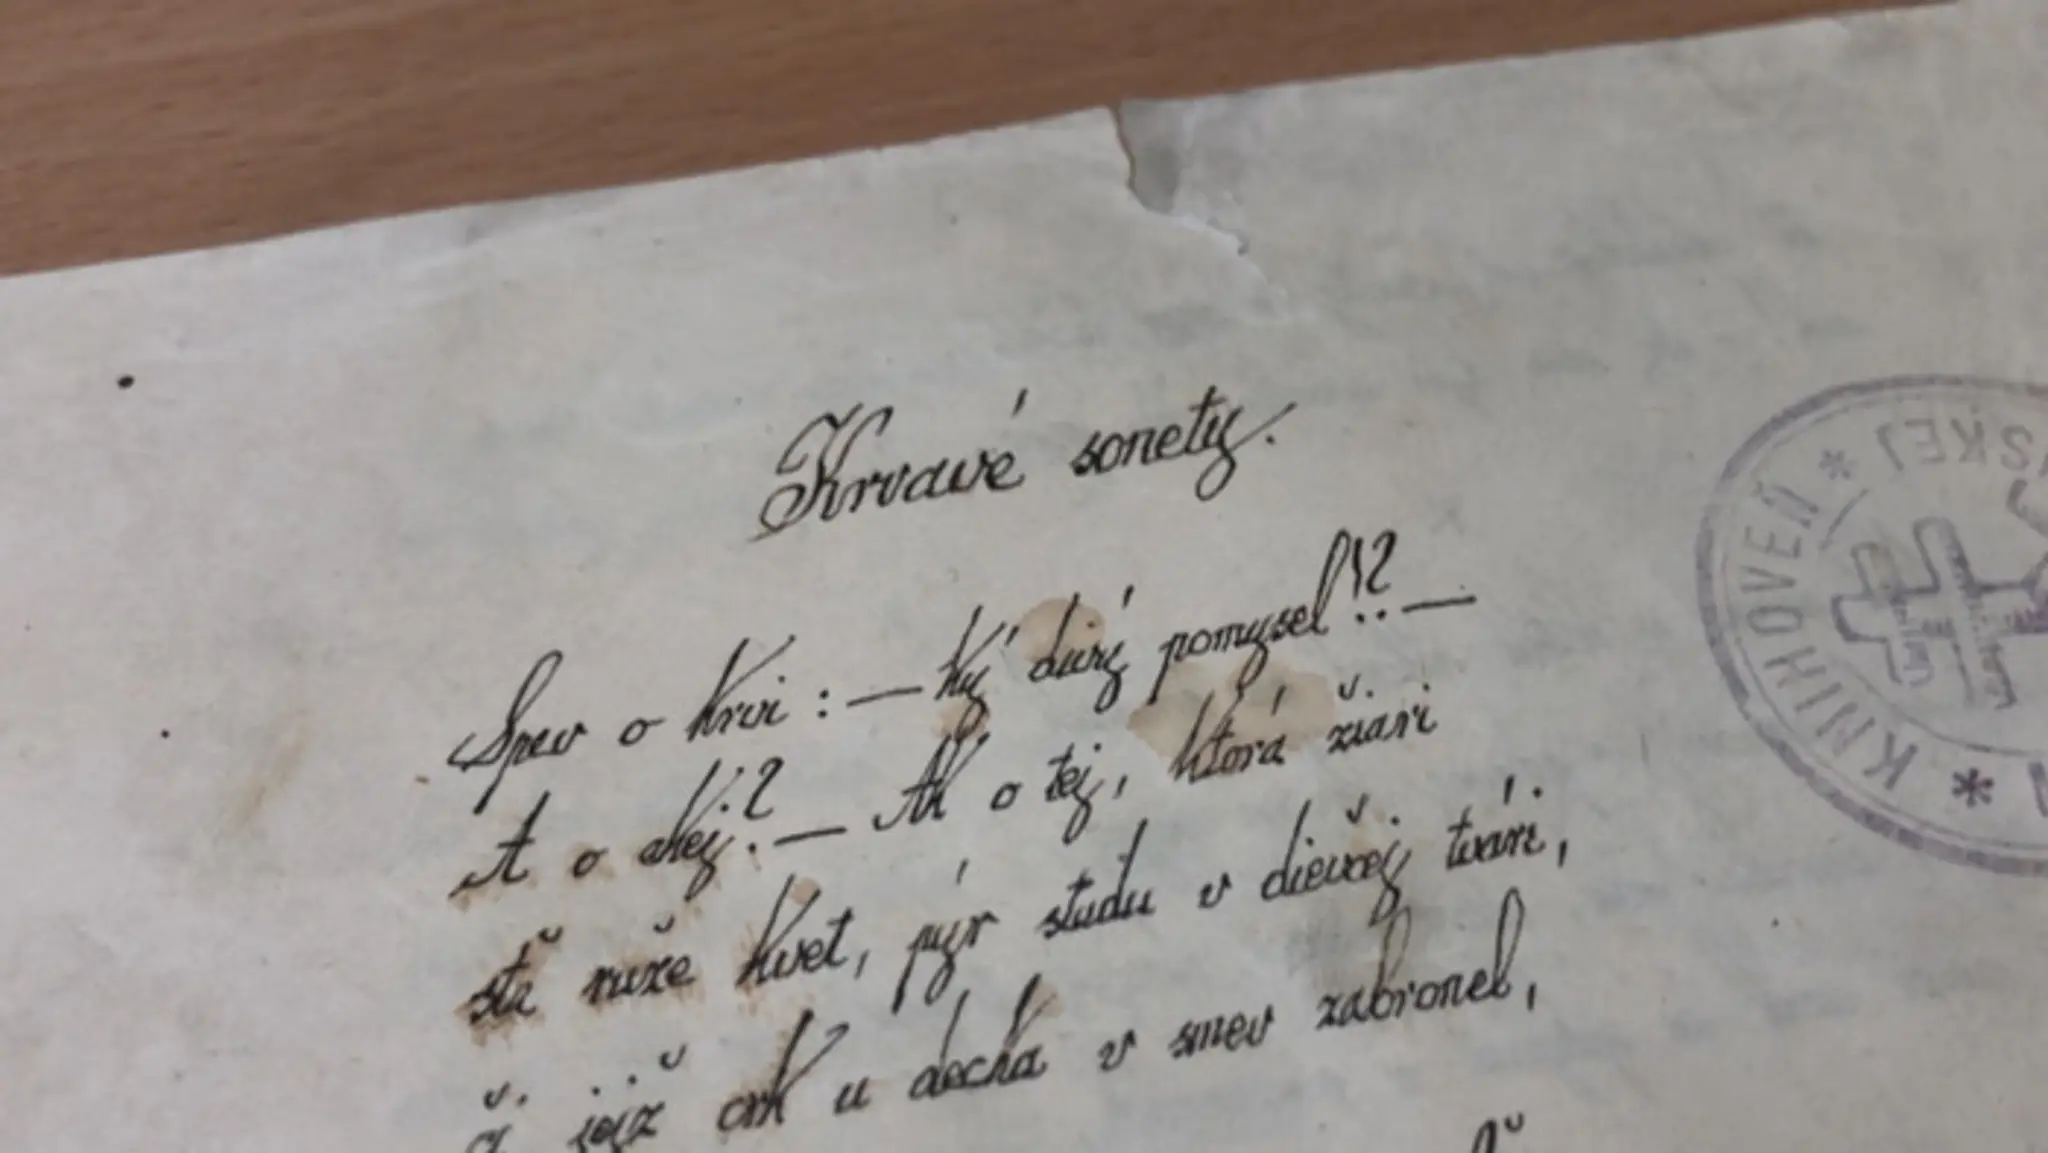 Krvavé sonety.
Spev o krvi : — ký divý pomysel!? —
A o akej? — Ak o tej, ktorá žiari
sťa ruže kvet, pýr studu v dievčej tvári,
či jejž crk u decka v smev zabronel,
* KNIHOVEŇ * 
SKEJ